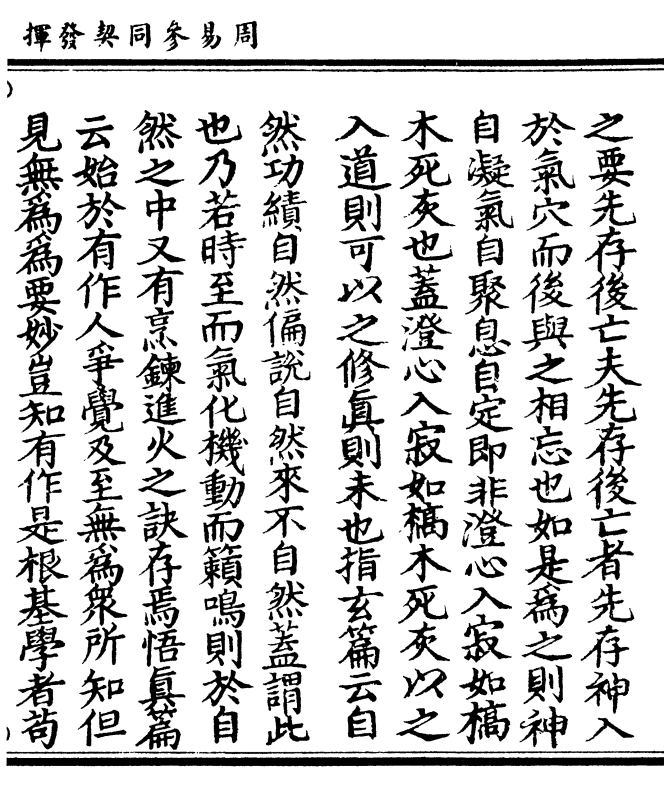 周易參同契發揮
之要先存後亡夫先存後亡者先存神入
於氣穴而後與之相忘也如是爲之則神
自凝氣自聚息自定即非澄心入寂如槁
木死灰也蓋澄心入寂如槁木死灰以之
入道則可以之修眞則未也指玄篇云自
然功績自然偏說自然來不自然蓋謂此
也乃若時至而氣化機動而籟鳴則於自
然之中又有烹鍊進火之訣存焉悟眞篇
云始於有作人爭覺及至無爲衆所知但
見無爲爲要妙豈知有作是根基學者苟